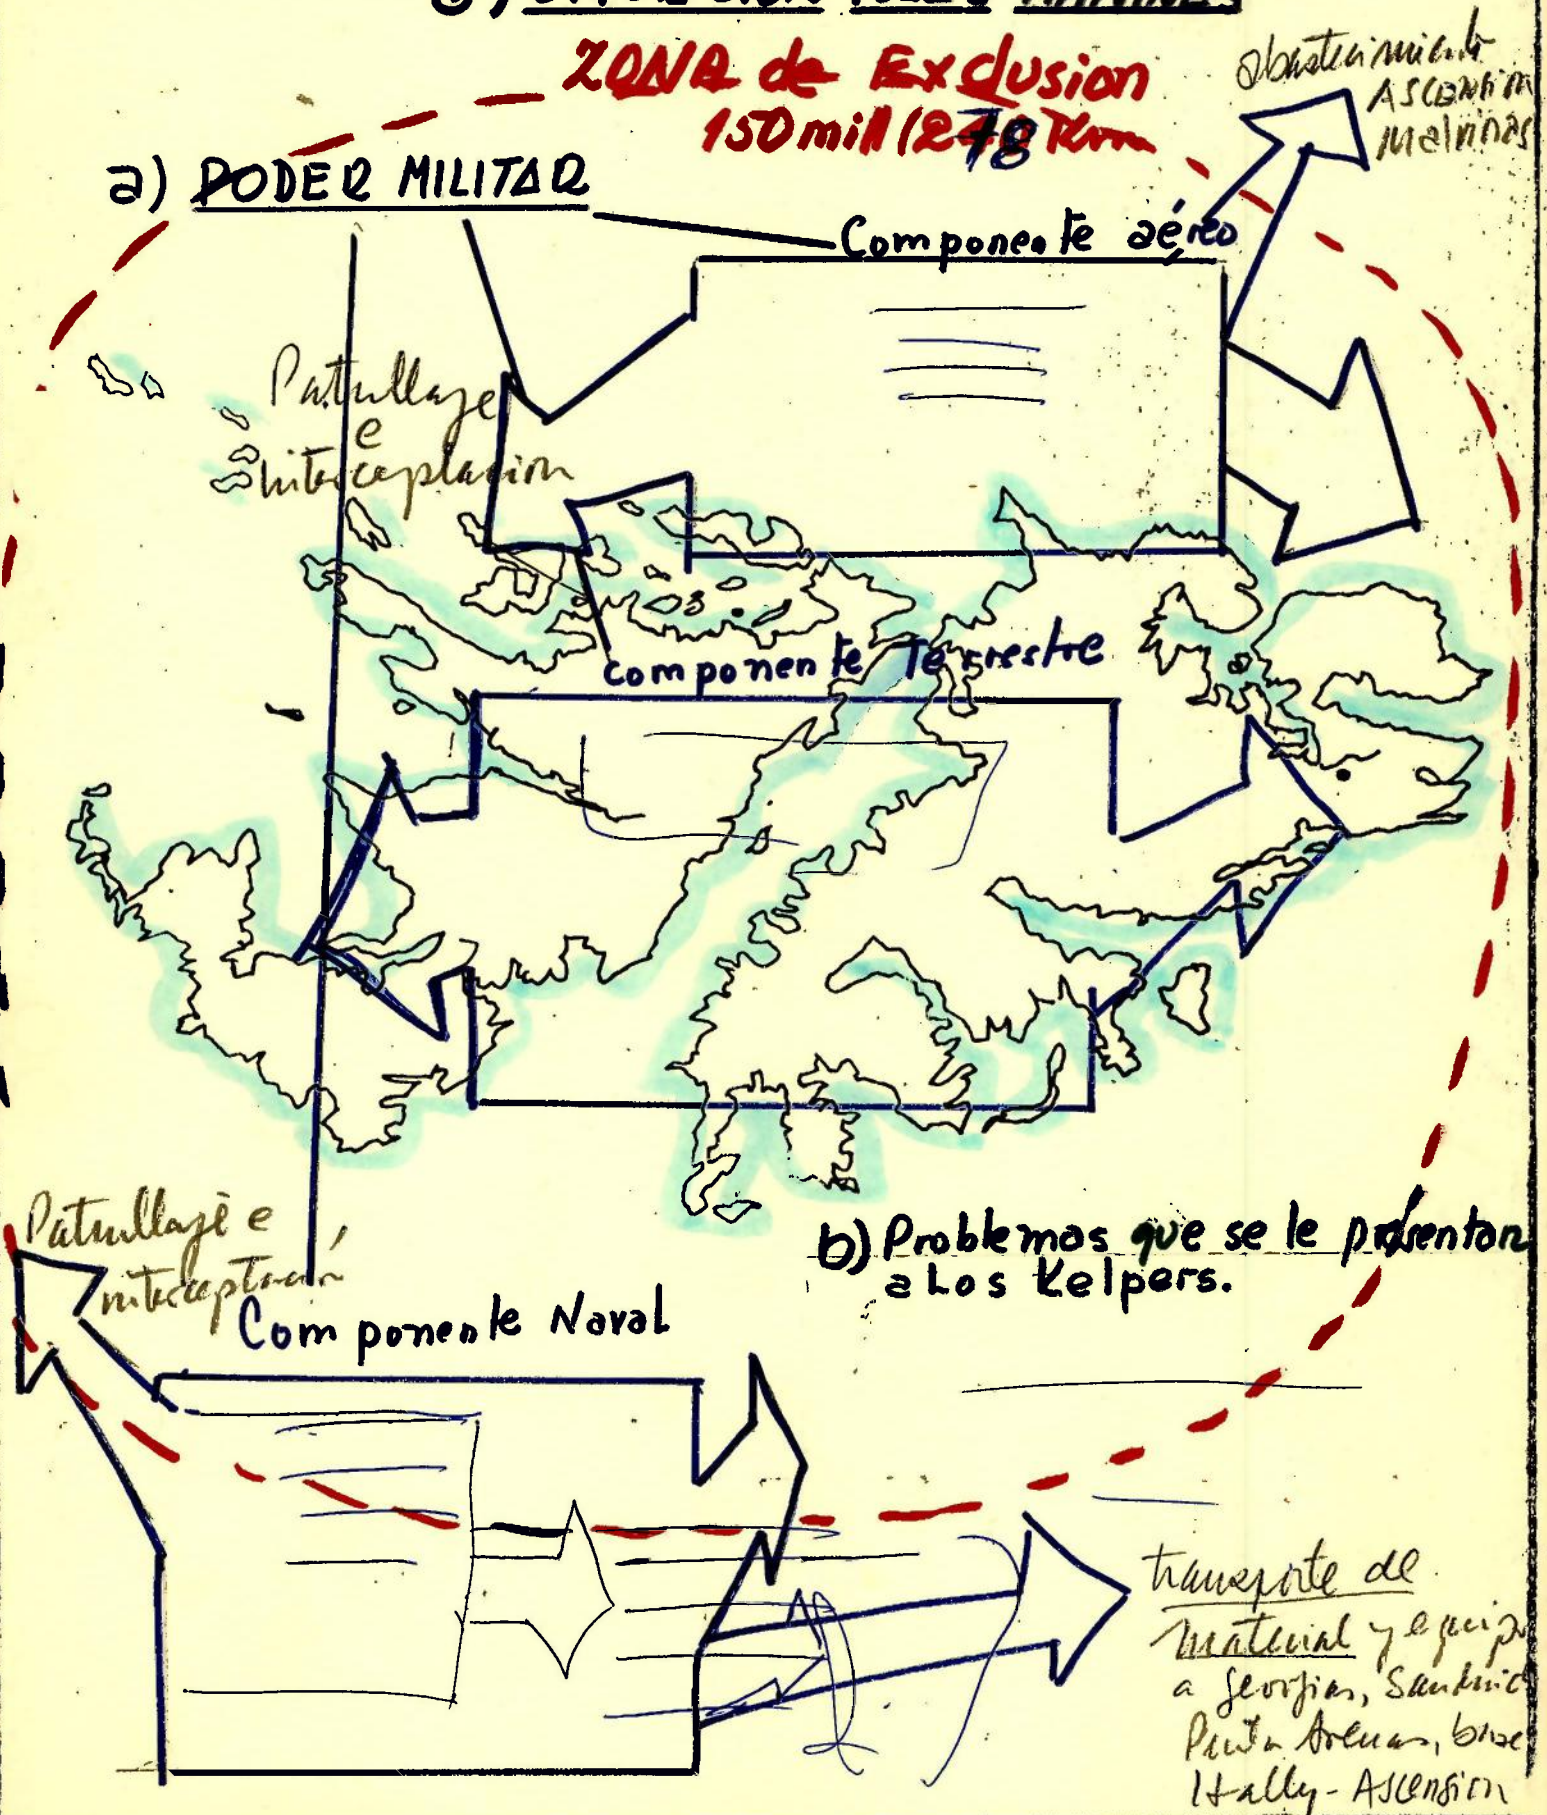 ZONA de Exclusion
150 mill (278 Km
abastecimiento
ASCENSION
Malvinas
a) PODER MILITAR
Componente aéreo
Patrullaje
e
intercaptacion
componente Terrestre
Patrullaje e
intercaptación
b) Problemas que se le présentan
a Los Kelpers.
Componente Naval
transporte de
material y equipo
a georgias, Sandwic
Punta Arenas, base
Hally - Ascension